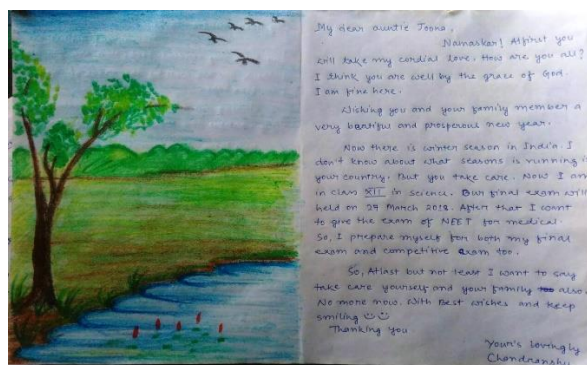 My dear auntie Joona,
Namaskar! Atfirst you
will take my cordial love. How are you all?
I think you are well by the grace of God.
I am fine here.
Wishing you and your family member a
very beatiful and prosperous new year.
Now there is winter season in India. I
don't know about what seasons is running in
your country. But you take care. Now I am
in class XII in science. Our final exam will
held on 29 March 2018. After that I want
to give the exam of NEET for medical.
So, I prepare myself for both my final
exam and competitive exam too.
So, Atlast but not least I want to say
take care yourself and your family also.
No more now. With Best wishes and keep
smiling
Thanking you
Your's lovingly
Chandranshu